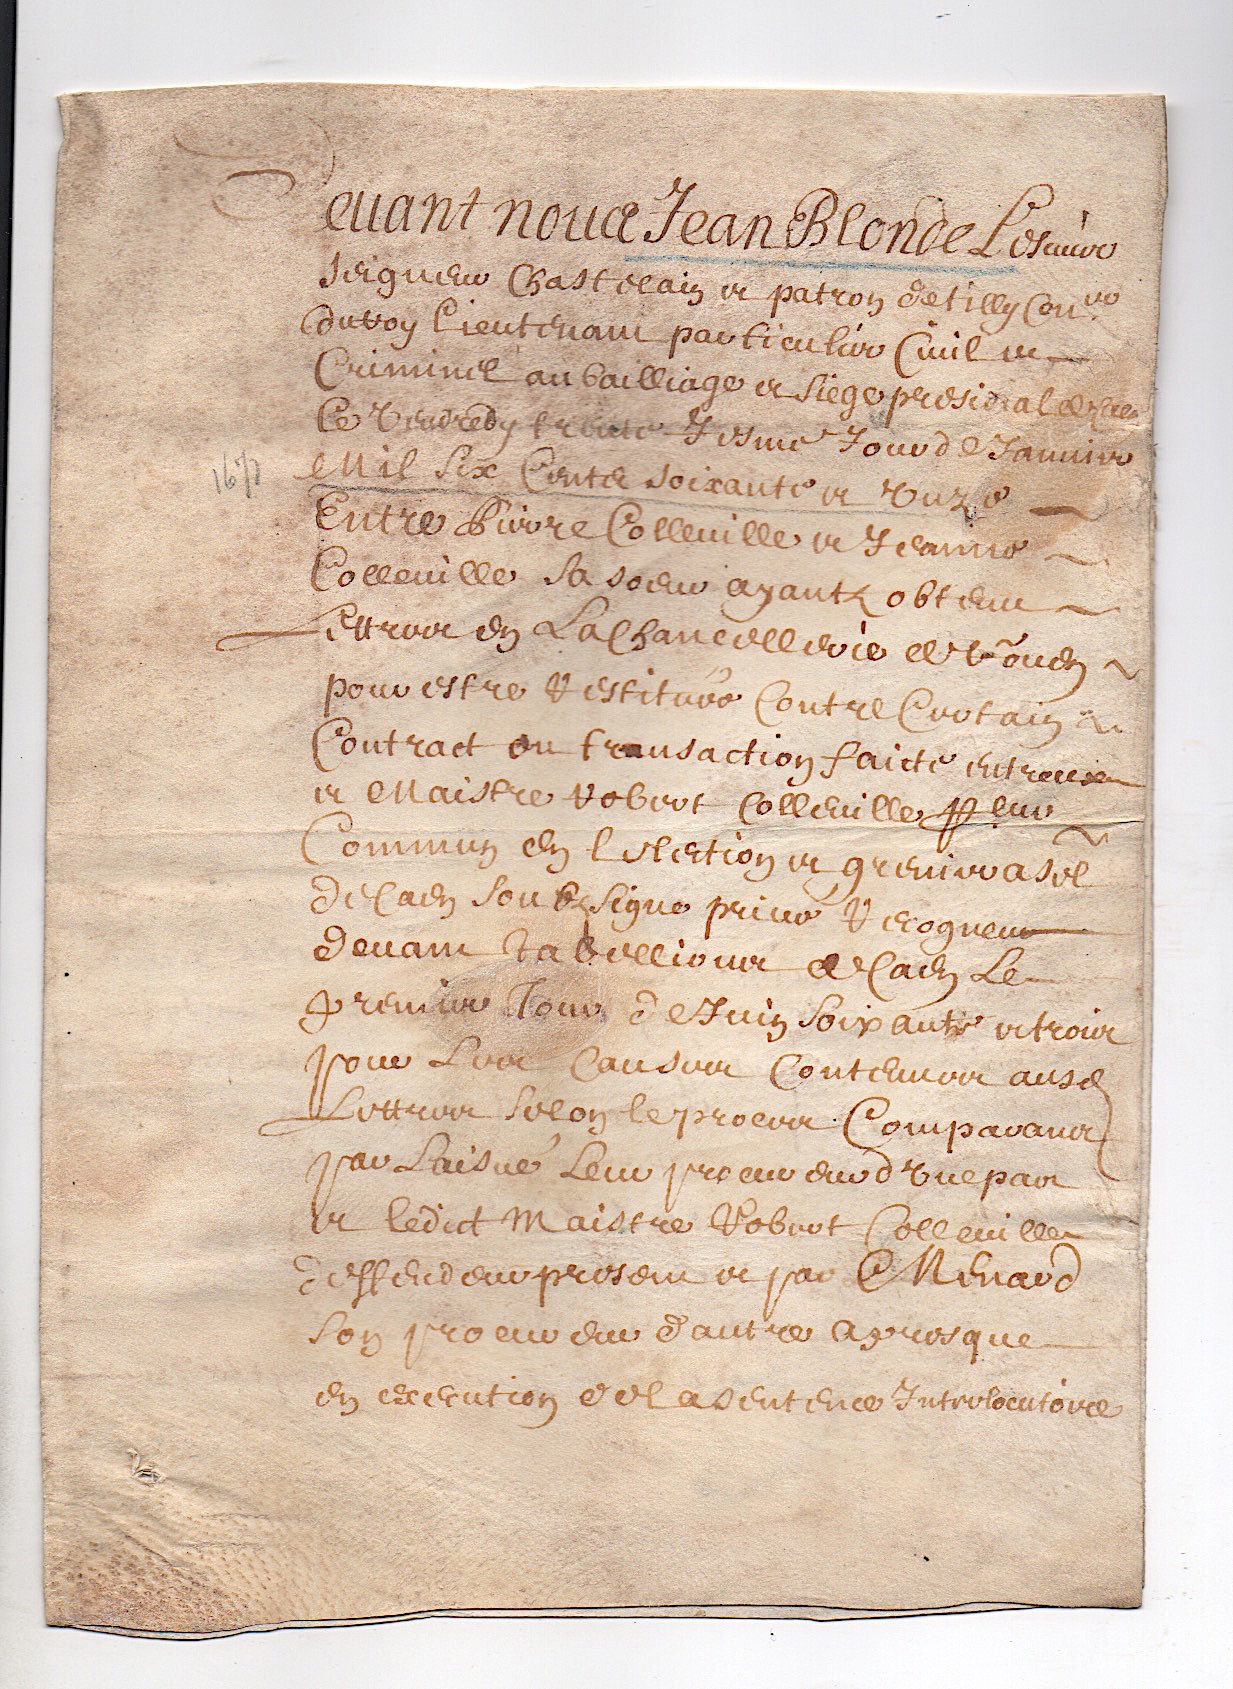 Devant nous Jean Blondel Escuier
Seigneur Chastelain et patron de tilly Coner
du Roy Lieutenant particulier Civil et
Criminel au bailliage et siege presidial de Caen
Le Vendredy trente Jesme Jour de Janvier
Mil Six Cents soixante et Unze
1671
Entre Pierre Colleville et Jeanne
Colleville Sa soeur ayants obtenu
Lettres en La Chancellerie de Rouen
pour estre Restitués Contre Certain
Contract ou transaction faicte entreux
et Maistre Robert Colleville
Commun en Lelection et grenier a sel
de Caen Soubs signe privé Recogneu
devant Tabellions de Caen Le
premier Jour de Juin Soixante et trois
pour Les Causes Contenues ausd
Lettres Selon le proces Comparants
par Laisné Leur procureur d Une part
et ledict Maistre Robert Colleville
deffendeur present et par Menard
Son procureur d'autre apres que
en execution de la sentence Interlocutoire